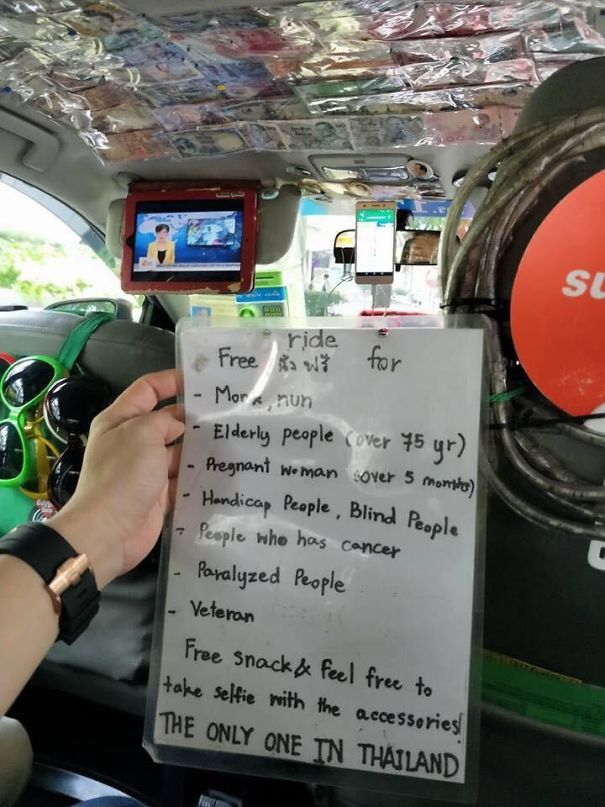 ride
Free นั่งฟรี for
- Monk, nun
- Elderly people (over 75 yr)
- Pregnant woman (over 5 months)
- Handicap People, Blind People
- People who has cancer
- Paralyzed People
- Veteran
Free snack & feel free to
take selfie with the accessories!
THE ONLY ONE IN THAILAND
SU